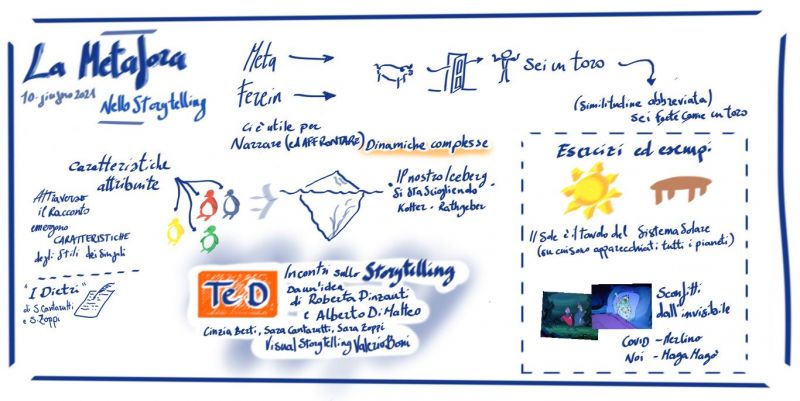 La Metafora
10 giugno 2021
Nello Storytelling
Meta
Ferein
Sei un toro
(Similitudine abbreviata)
Sei forte come un toro
Ci è utile per
Narrare (ed AFFRONTARE) Dinamiche complesse
Caratteristiche
attribuite
Attraverso
il Racconto
emergono
CARATTERISTICHE
degli Stili dei Singoli
"Il nostro Iceberg
si sta sciogliendo"
Kotter - Rathgeber
"I Dietri"
di S. Cantaratti
e S. Zoppi
TeD
Incontri sullo Storytelling
Da un'idea
di Roberta Pinzauti
e Alberto Di Matteo
Cinzia Berti, Sara Cantaratti, Sara Zoppi
Visual Storytelling Valerio Boni
Esercizi ed esempi
Il Sole è il tavolo del Sistema Solare
(su cui sono apparecchiati tutti i pianeti)
Sconfitti
dall'invisibile
COVID - Merlino
Noi - Maga Magò